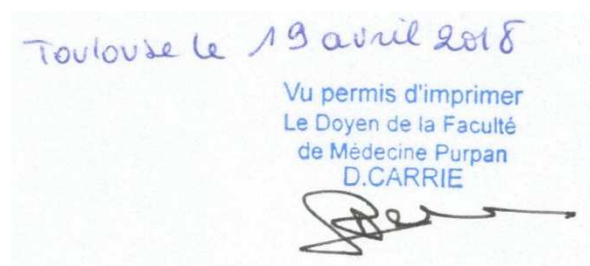 Toulouse le 19 avril 2018
Vu permis d'imprimer
Le Doyen de la Faculté
de Médecine Purpan
D.CARRIE